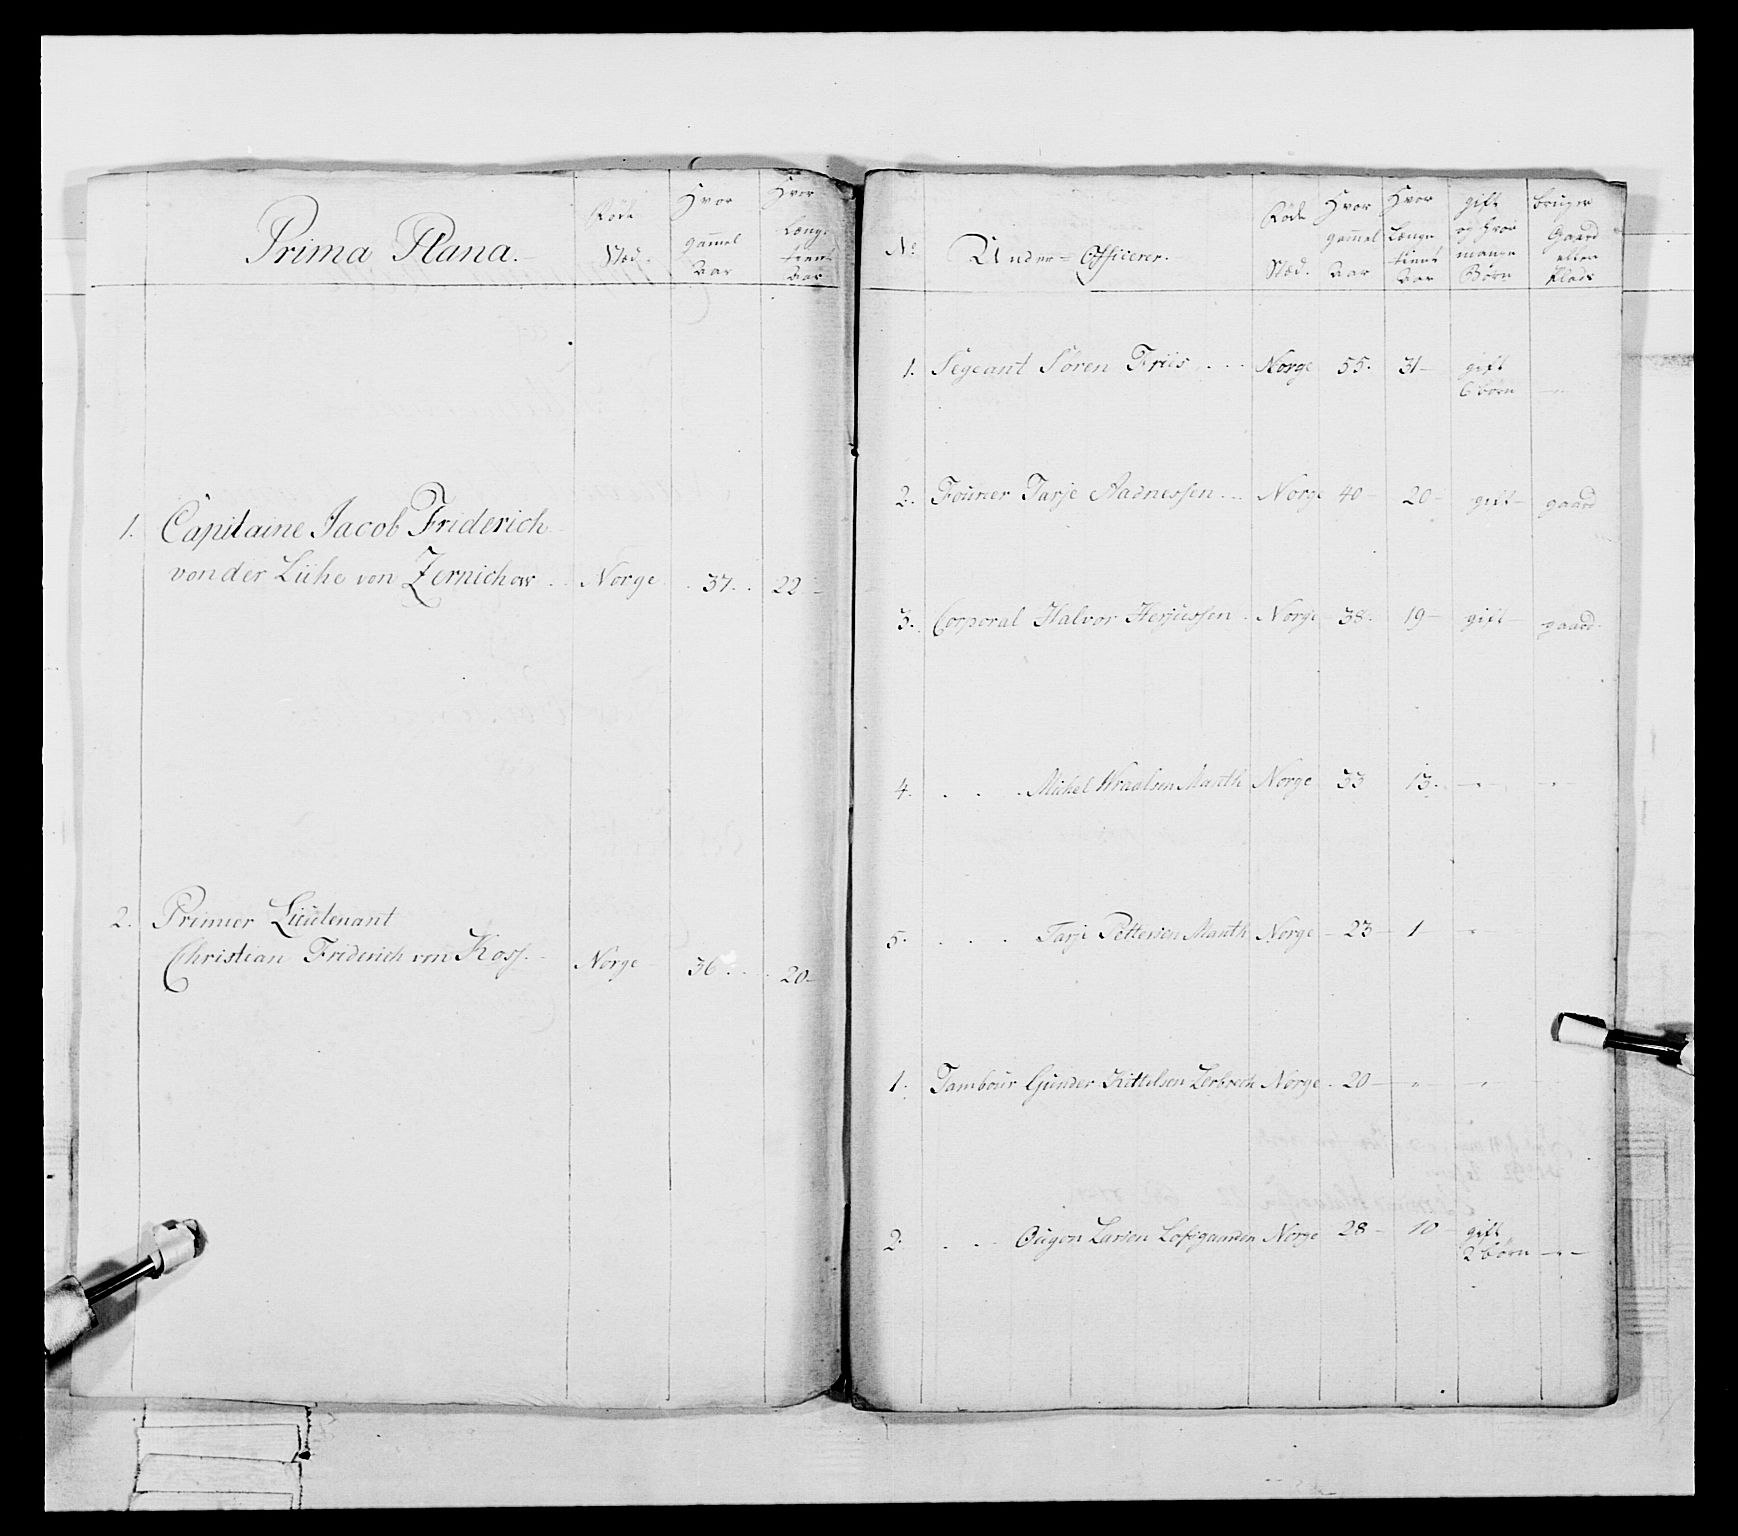 Prima Plana.
Föde Sted.
Hvor gammel Aar
Hvor Længe tient Aar
1. Capitaine Jacob Friderich
von der Lühe von Zernichow . Norge . 37 . . 22 -
2. Primier Lieutenant
Christian Friderich von Koss. - Norge - 36 . . . 20 -
No
Under-Officerer.
Föde Sted.
Hvor gammel Aar
Hvor Længe tient Aar
gift og hvor mange Börn
bruger Gaard eller Plads
1. Segeant Sören Friis . . . Norge 55. 31 - gift
6 börn - " -
2. Fourier Tarje Aadnessen . . . Norge 40 - 20 - gift - gaard
3. Corporal Halvor Herjussen . Norge - 38. 19 - gift - gaard.
4. . . . Michel Wraalsen Manth Norge 33 13. - " - - " -
5. . . . Tarje Pettersen Manth Norge - 23 - 1 "
1. Tambour Gunder Kittelsen Norge . 20 - " "
2. . . Ougon Larson Lofsgaarden Norge 28 - 10 - gift
2 börn - " -